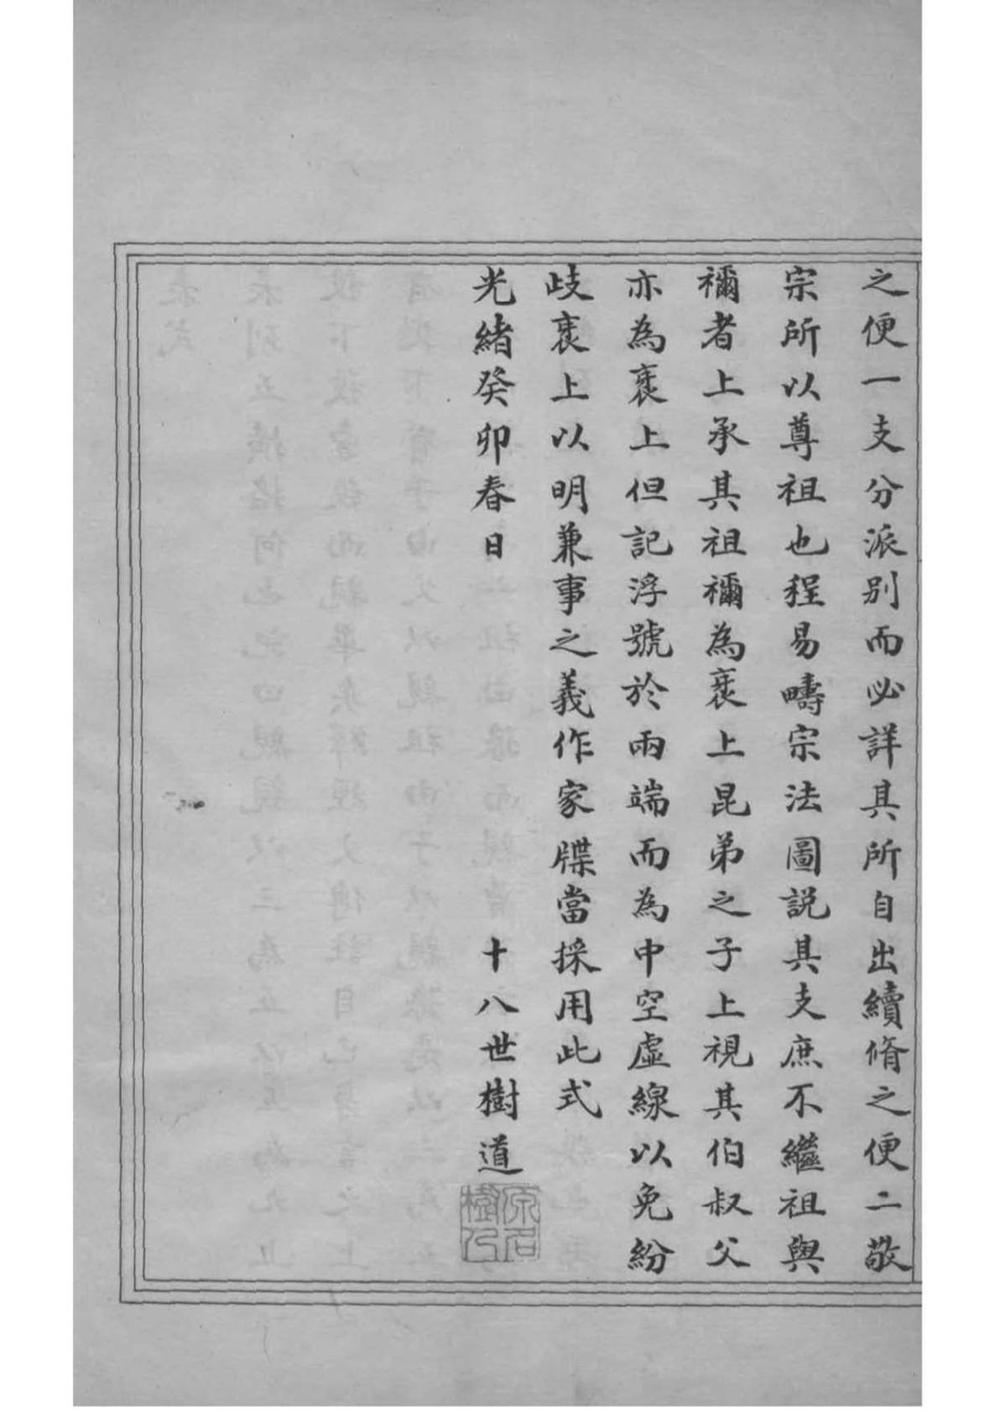 之便一支分派别而必詳其所自出續脩之便二敬
宗所以尊祖也程易疇宗法圖説其支庶不繼祖與
禰者上承其祖禰為袤上昆弟之子上視其伯叔父
亦為袤上但記浮號於兩端而為中空虛線以免紛
歧袤上以明兼事之義作家牒當採用此式
光緒癸卯春日 十八世樹道